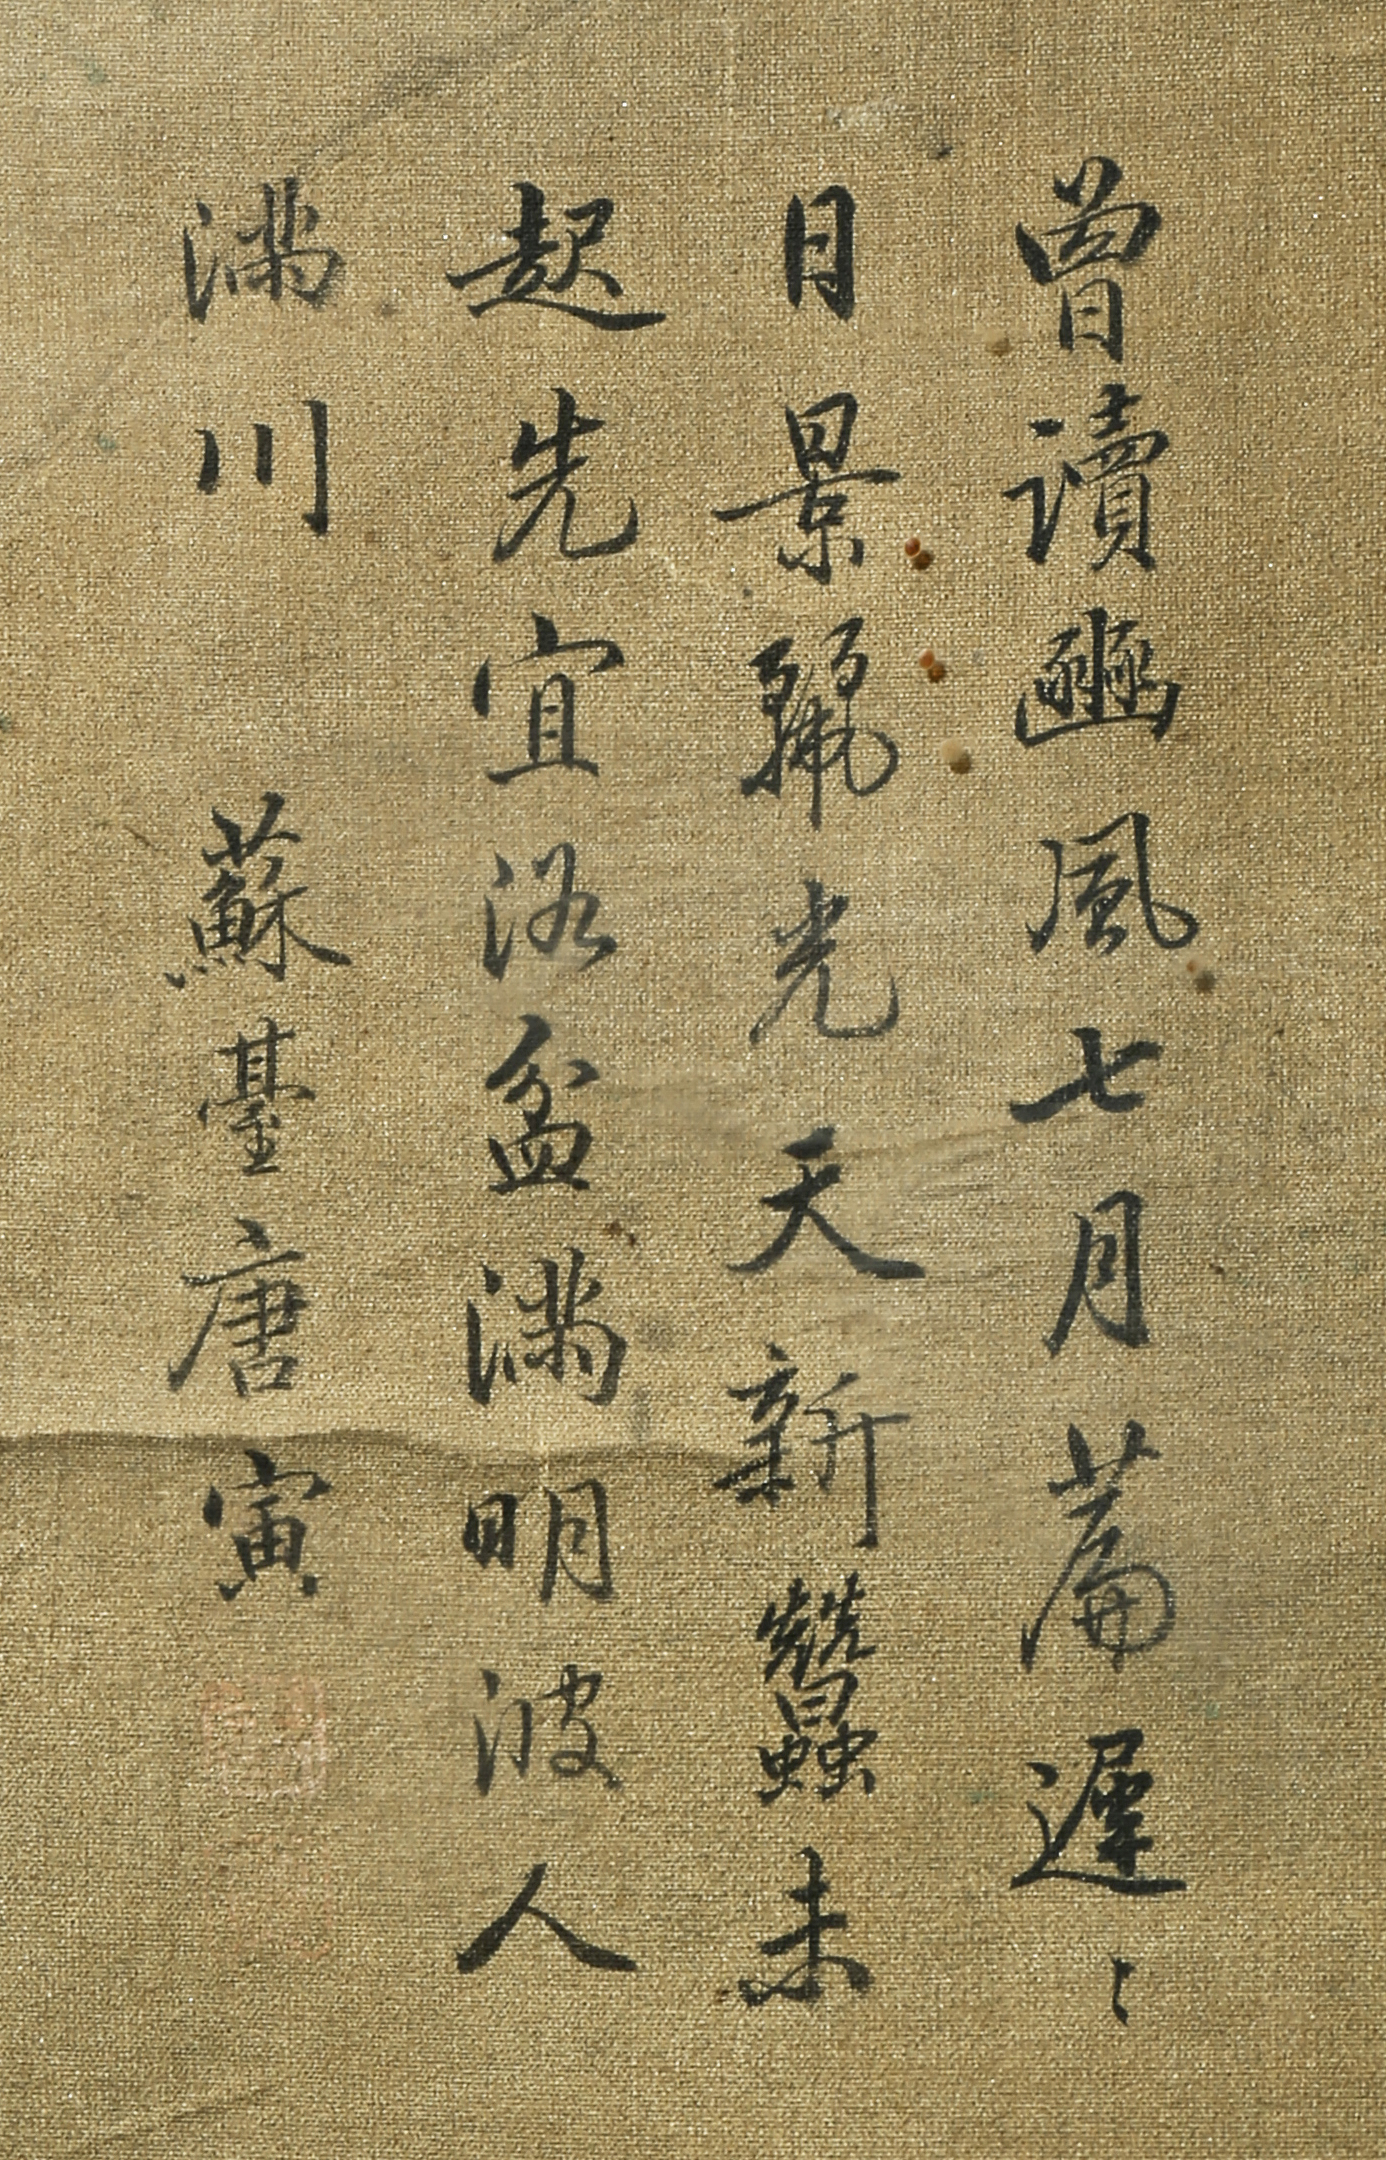 曾讀豳風七月篇遲〻
日景麗光天新蠶未
起先宜浴盆滿明波人
滿川　蘇臺唐寅